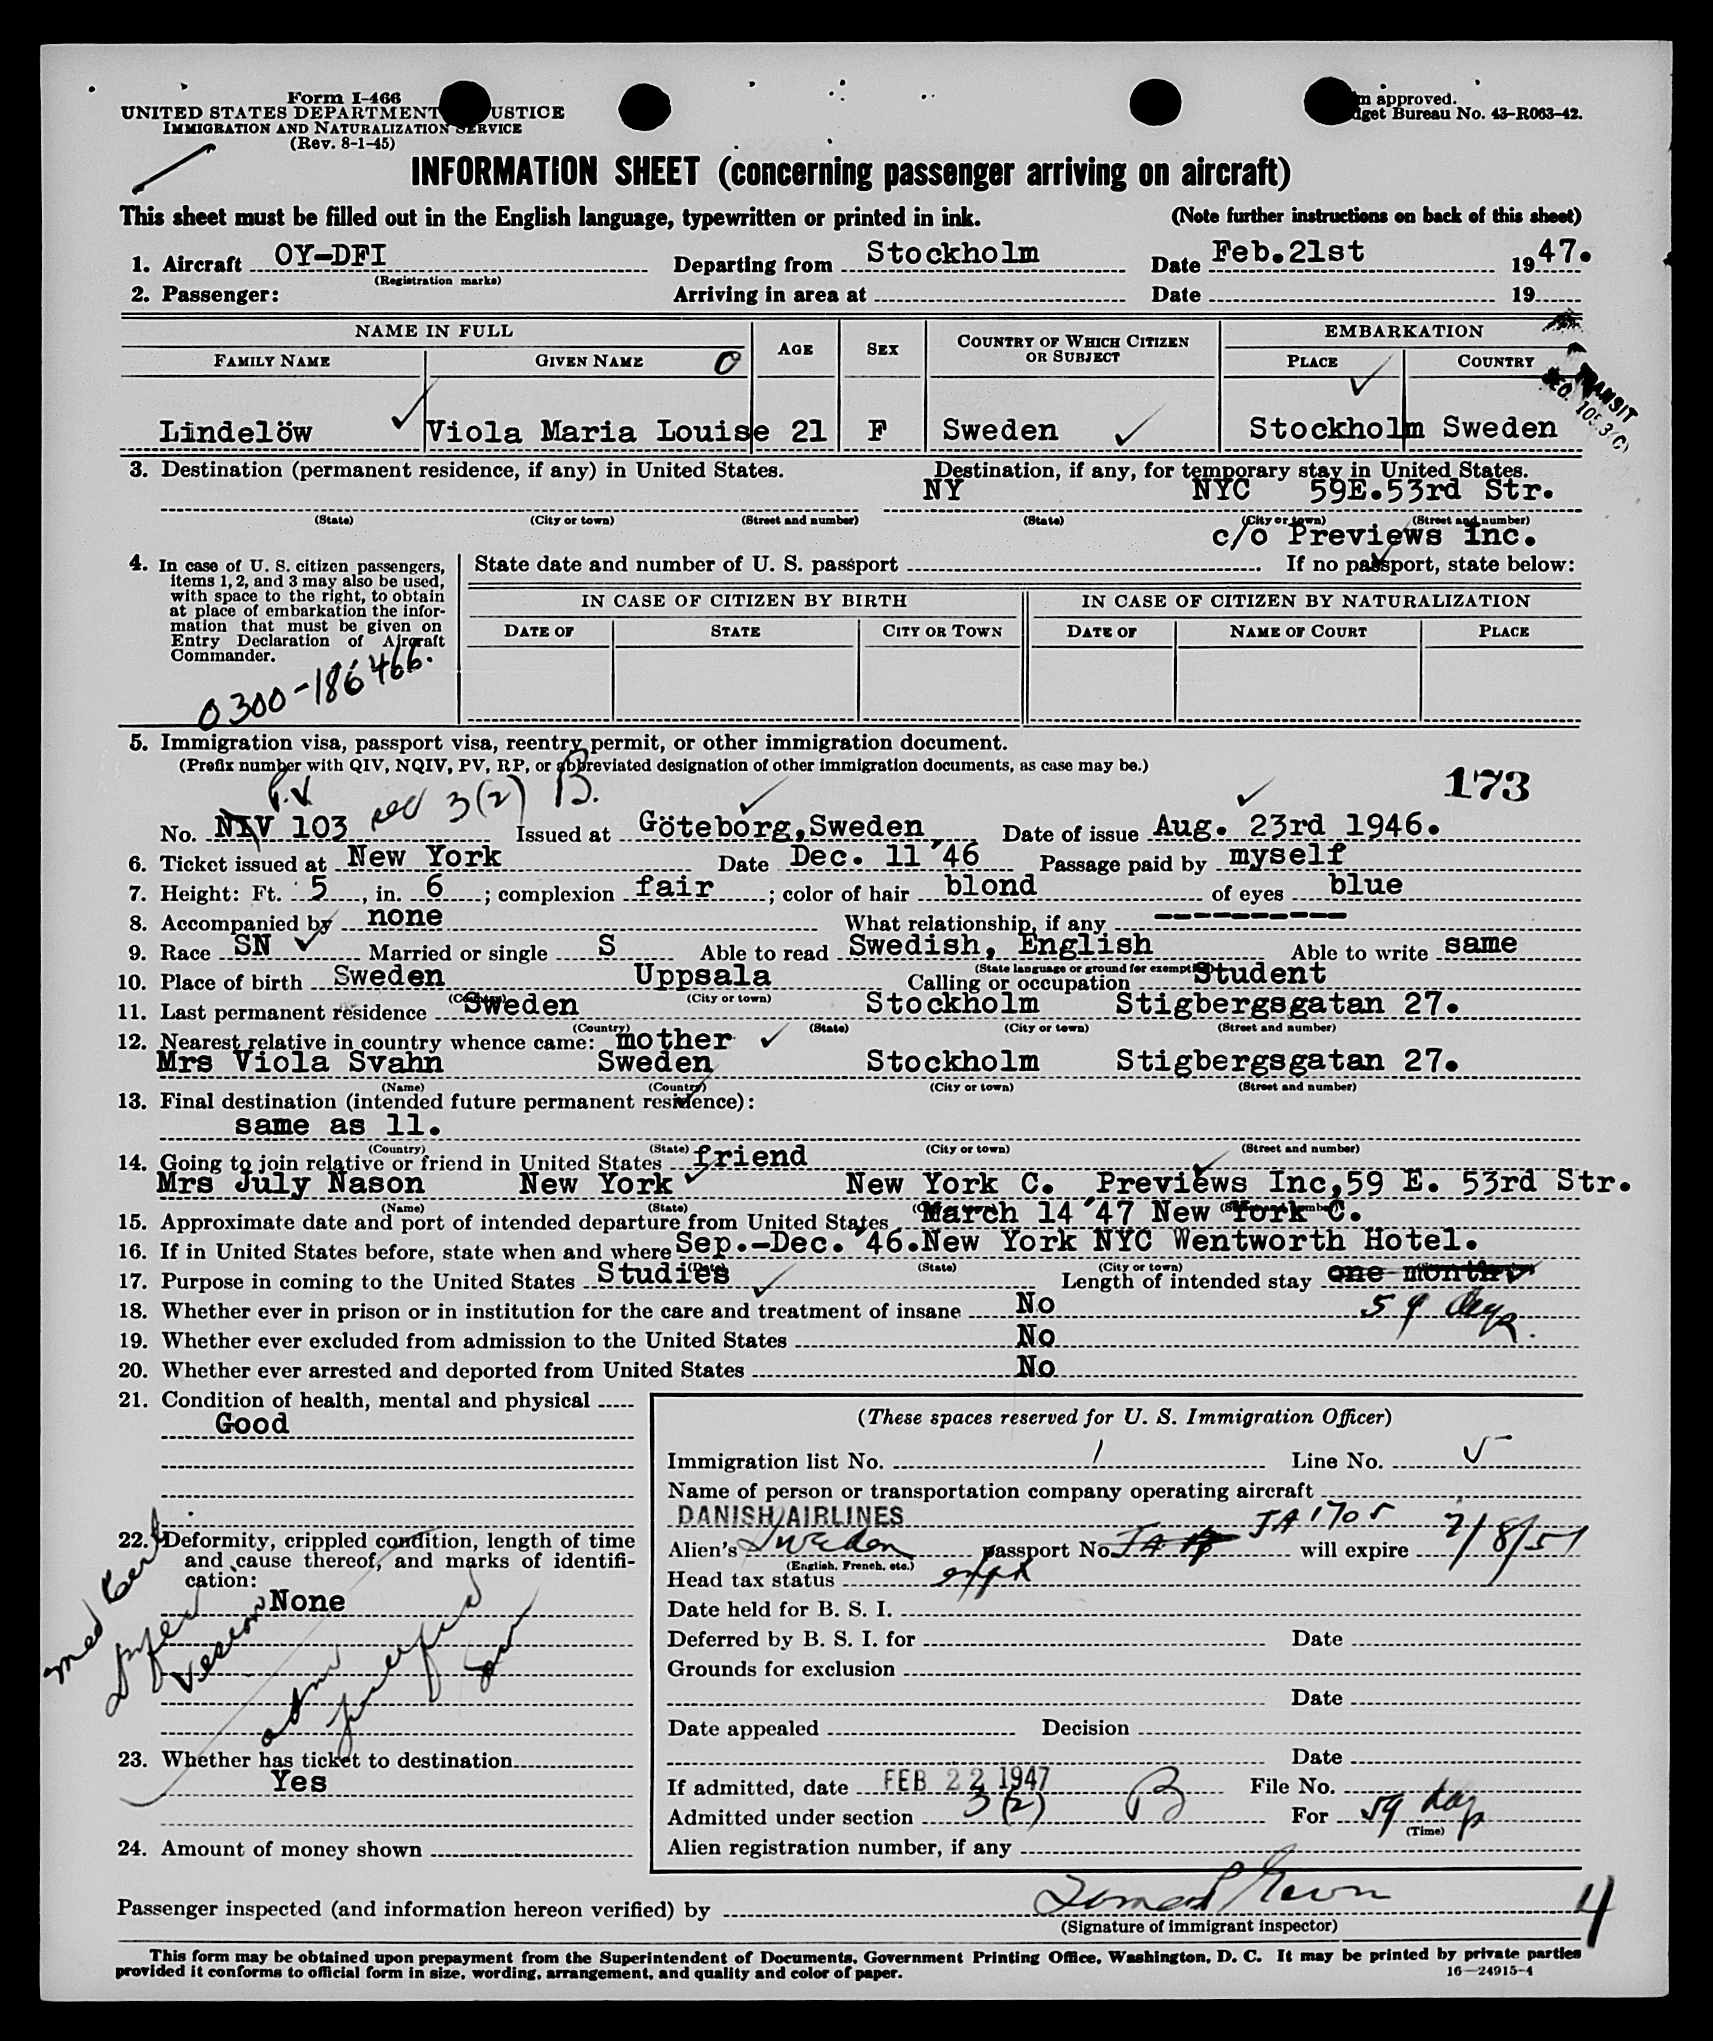 Form I-466
UNITED STATES DEPARTMENT USTICE
IMMIGRATION AND NATURALIZATION SERVICE
(Rev. 8-1-45)
m approved.
dget Bureau No. 43-R063-42.
INFORMATION SHEET (concerning passenger arriving on aircraft)
This sheet must be filled out in the English language, typewritten or printed in ink. (Note further instructions on back of this sheet)
1. Aircraft OY-DFI Departing from Stockholm Date Feb.21st 1947.
(Registration marks)
2. Passenger: Arriving in area at Date 19
NAME IN FULL AGE SEX COUNTRY OF WHICH CITIZEN OR SUBJECT EMBARKATION
FAMILY NAME GIVEN NAME 0 PLACE COUNTRY
TRANSIT
Lindelöw Viola Maria Louise 21 F Sweden Stockholm Sweden
3. Destination (permanent residence, if any) in United States. Destination, if any, for temporary stay in United States.
NY NYC 59E.53rd Str.
(State) (City or town) (Street and number) (State) (City or town) (Street and number)
c/o Previews Inc.
4. In case of U. S. citizen passengers, items 1, 2, and 3 may also be used, with space to the right, to obtain at place of embarkation the information that must be given on Entry Declaration of Aircraft Commander.
State date and number of U. S. passport If no passport, state below:
IN CASE OF CITIZEN BY BIRTH IN CASE OF CITIZEN BY NATURALIZATION
DATE OF STATE CITY OR TOWN DATE OF NAME OF COURT PLACE
0300-186466.
5. Immigration visa, passport visa, reentry permit, or other immigration document.
(Prefix number with QIV, NQIV, PV, RP, or abbreviated designation of other immigration documents, as case may be.)
P.V 3(2) B. 173
No. NIV 103 Issued at Göteborg,Sweden Date of issue Aug. 23rd 1946.
6. Ticket issued at New York Date Dec. 11 ´46 Passage paid by myself
7. Height: Ft. 5, in. 6; complexion fair; color of hair blond of eyes blue
8. Accompanied by none What relationship, if any ---------
9. Race SN Married or single S Able to read Swedish, English Able to write same
(State language or ground for exemption)
10. Place of birth Sweden Uppsala Calling or occupation Student
(Country) (City or town)
11. Last permanent residence Sweden Stockholm Stigbergsgatan 27.
(Country) (State) (City or town) (Street and number)
12. Nearest relative in country whence came: mother
Mrs Viola Svahn Sweden Stockholm Stigbergsgatan 27.
(Name) (Country) (City or town) (Street and number)
13. Final destination (intended future permanent residence):
same as 11.
(Country) (State) (City or town) (Street and number)
14. Going to join relative or friend in United States friend
Mrs July Nason New York New York C. Previews Inc,59 E. 53rd Str.
(Name) (State)
15. Approximate date and port of intended departure from United States March 14 ´47 New York C.
16. If in United States before, state when and where Sep.-Dec. ´46.New York NYC Wentworth Hotel.
(Date) (State) (City or town)
17. Purpose in coming to the United States Studies Length of intended stay one month
59 days.
18. Whether ever in prison or in institution for the care and treatment of insane No
19. Whether ever excluded from admission to the United States No
20. Whether ever arrested and deported from United States No
21. Condition of health, mental and physical
Good
22. Deformity, crippled condition, length of time and cause thereof, and marks of identification:
None
23. Whether has ticket to destination
Yes
24. Amount of money shown
(These spaces reserved for U. S. Immigration Officer)
Immigration list No. 1 Line No. 5
Name of person or transportation company operating aircraft
DANISH AIRLINES
Alien's Sweden passport No. JA 1705 will expire 2/8/51
(English, French, etc.)
Head tax status
Date held for B. S. I.
Deferred by B. S. I. for Date
Grounds for exclusion
Date
Date appealed Decision
Date
If admitted, date FEB 22 1947 File No.
Admitted under section 3(2) B For 59 days
(Time)
Alien registration number, if any
Passenger inspected (and information hereon verified) by
4
(Signature of immigrant inspector)
This form may be obtained upon prepayment from the Superintendent of Documents, Government Printing Office, Washington, D. C. It may be printed by private parties
provided it conforms to official form in size, wording, arrangement, and quality and color of paper. 16—24915-4